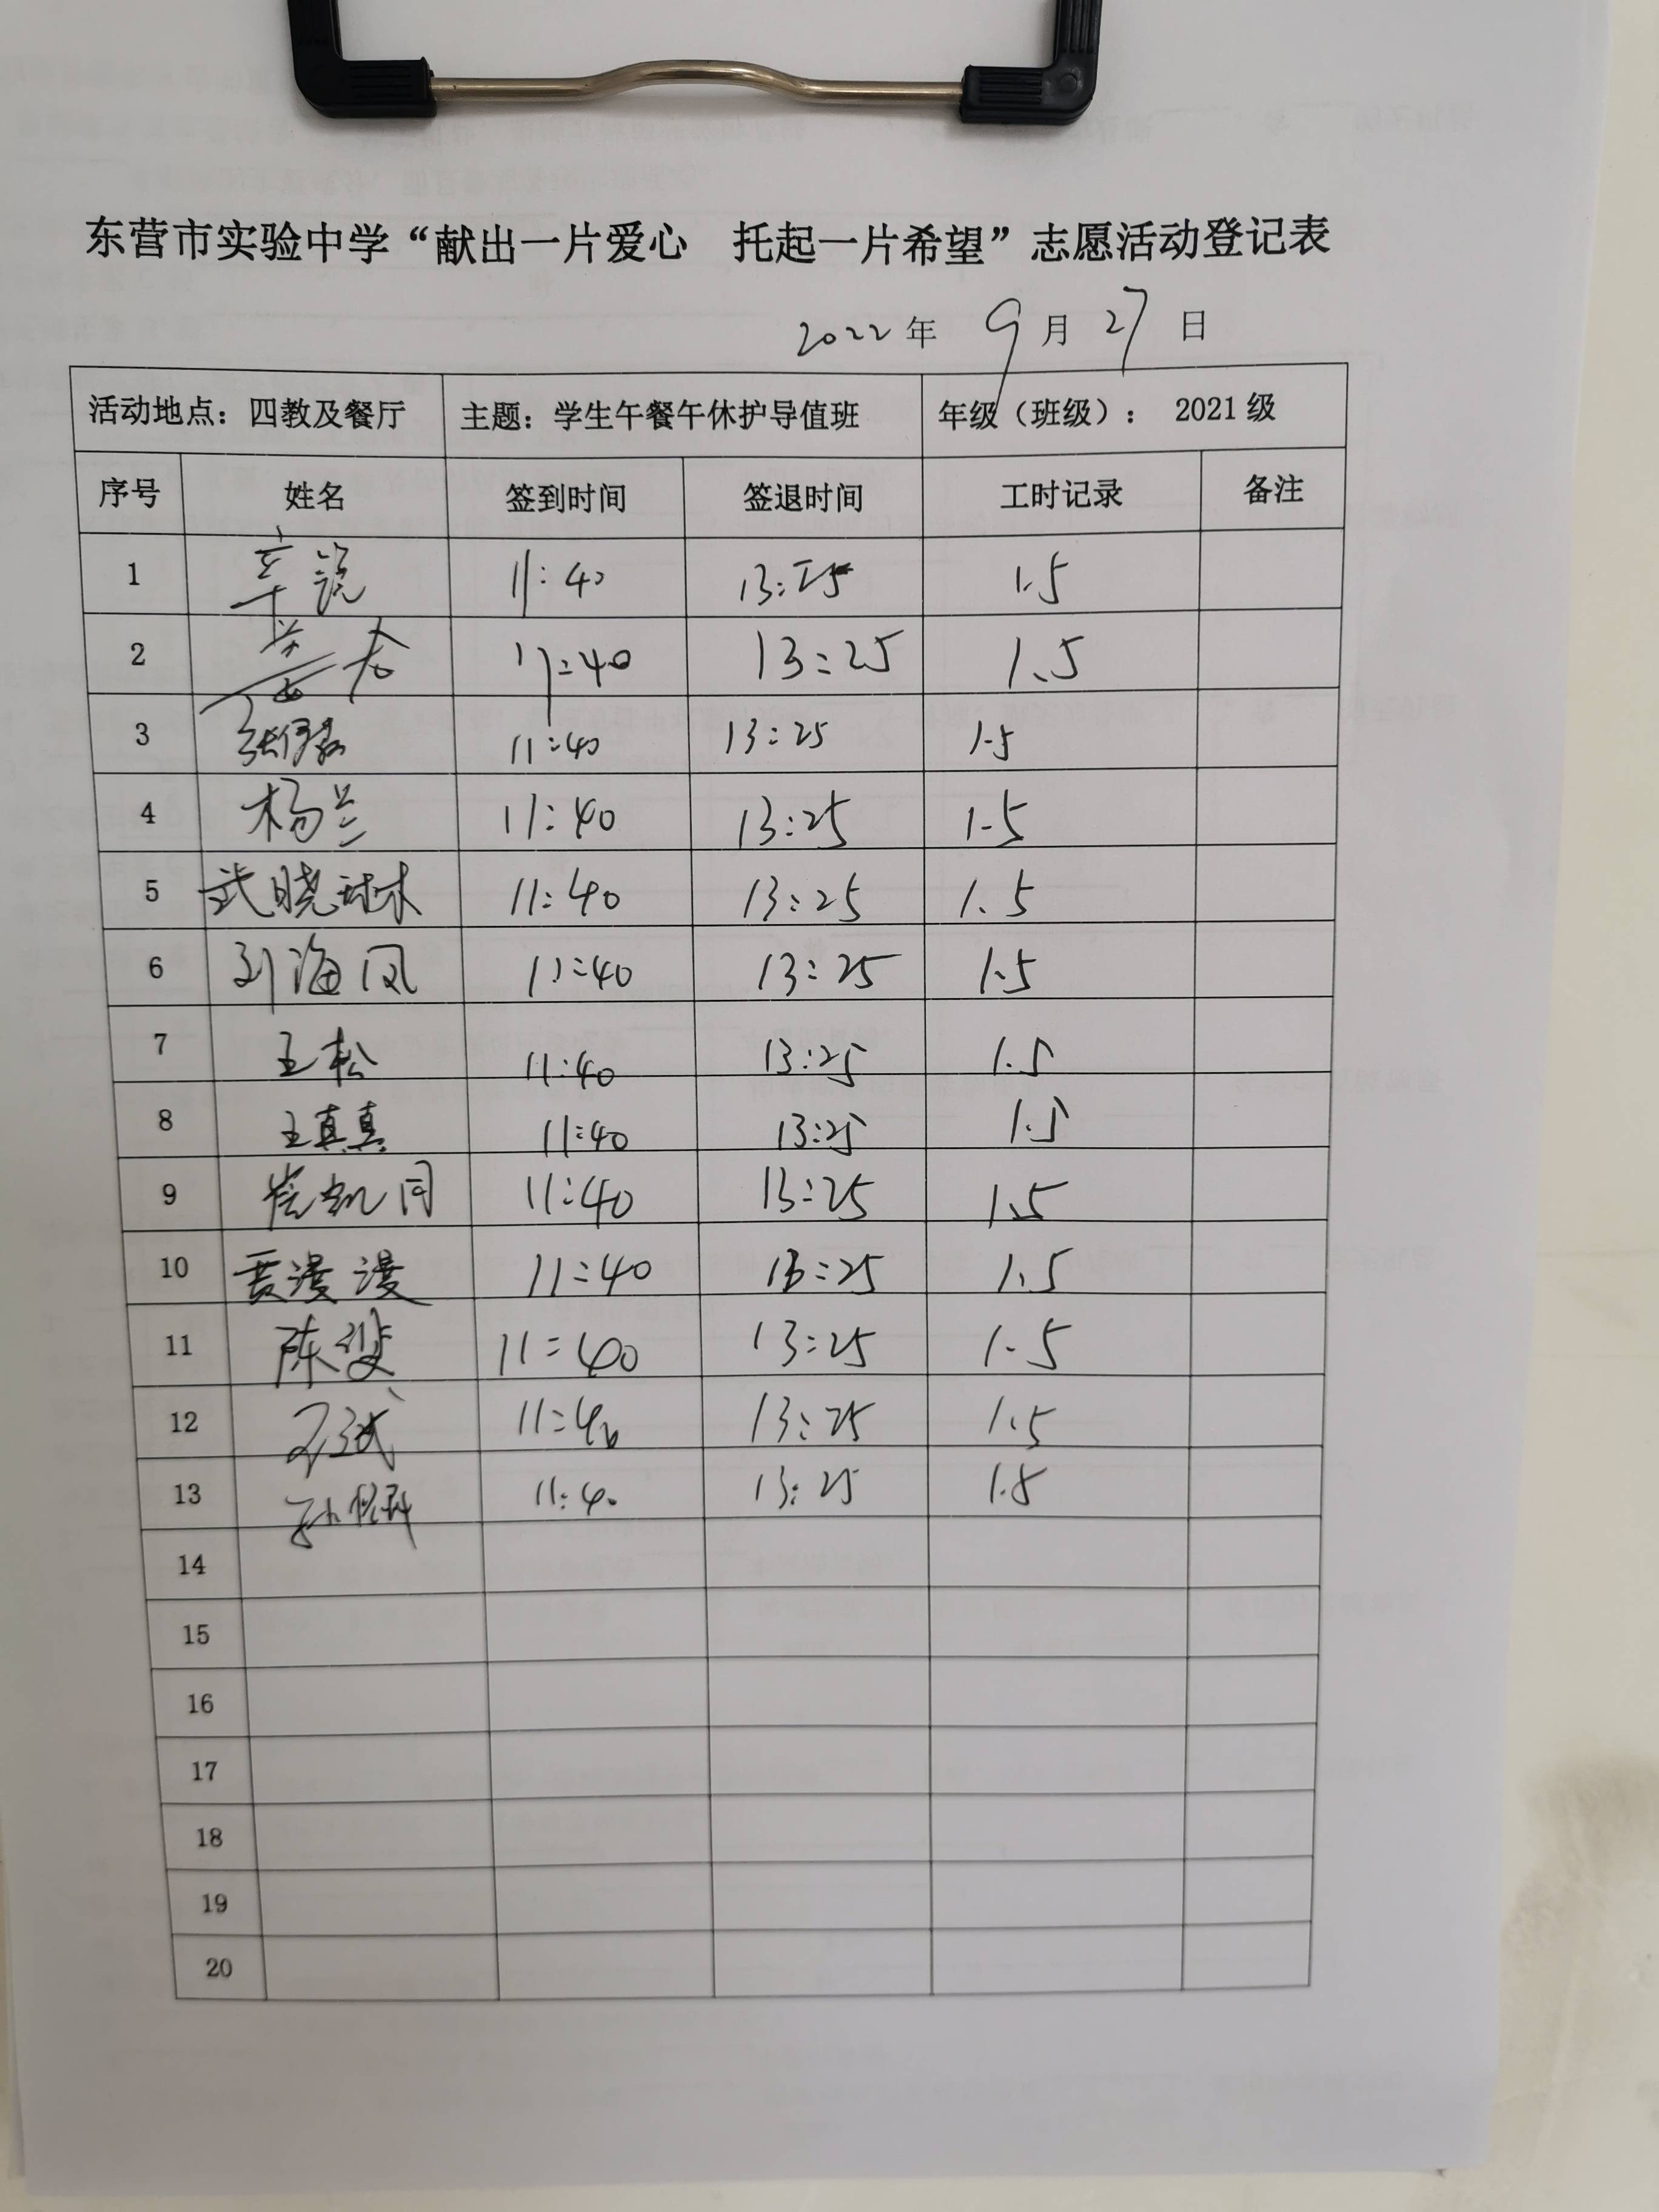 东营市实验中学“献出一片爱心 托起一片希望”志愿活动登记表
2022年 9月27日
活动地点：四教及餐厅 主题：学生午餐午休护导值班 年级（班级）： 2021级
序号 姓名 签到时间 签退时间 工时记录 备注
1 11:40 13:25 1.5
2 11:40 13:25 1.5
3 11:40 13:25 1.5
4 杨兰 11:40 13:25 1.5
5 武晓琳 11:40 13:25 1.5
6 刘海凤 11:40 13:25 1.5
7 王松 11:40 13:25 1.5
8 王真真 11:40 13:25 1.5
9 崔凯同 11:40 13:25 1.5
10 贾漫漫 11:40 13:25 1.5
11 陈斐 11:40 13:25 1.5
12 11:40 13:25 1.5
13 11:40 13:25 1.5
14
15
16
17
18
19
20